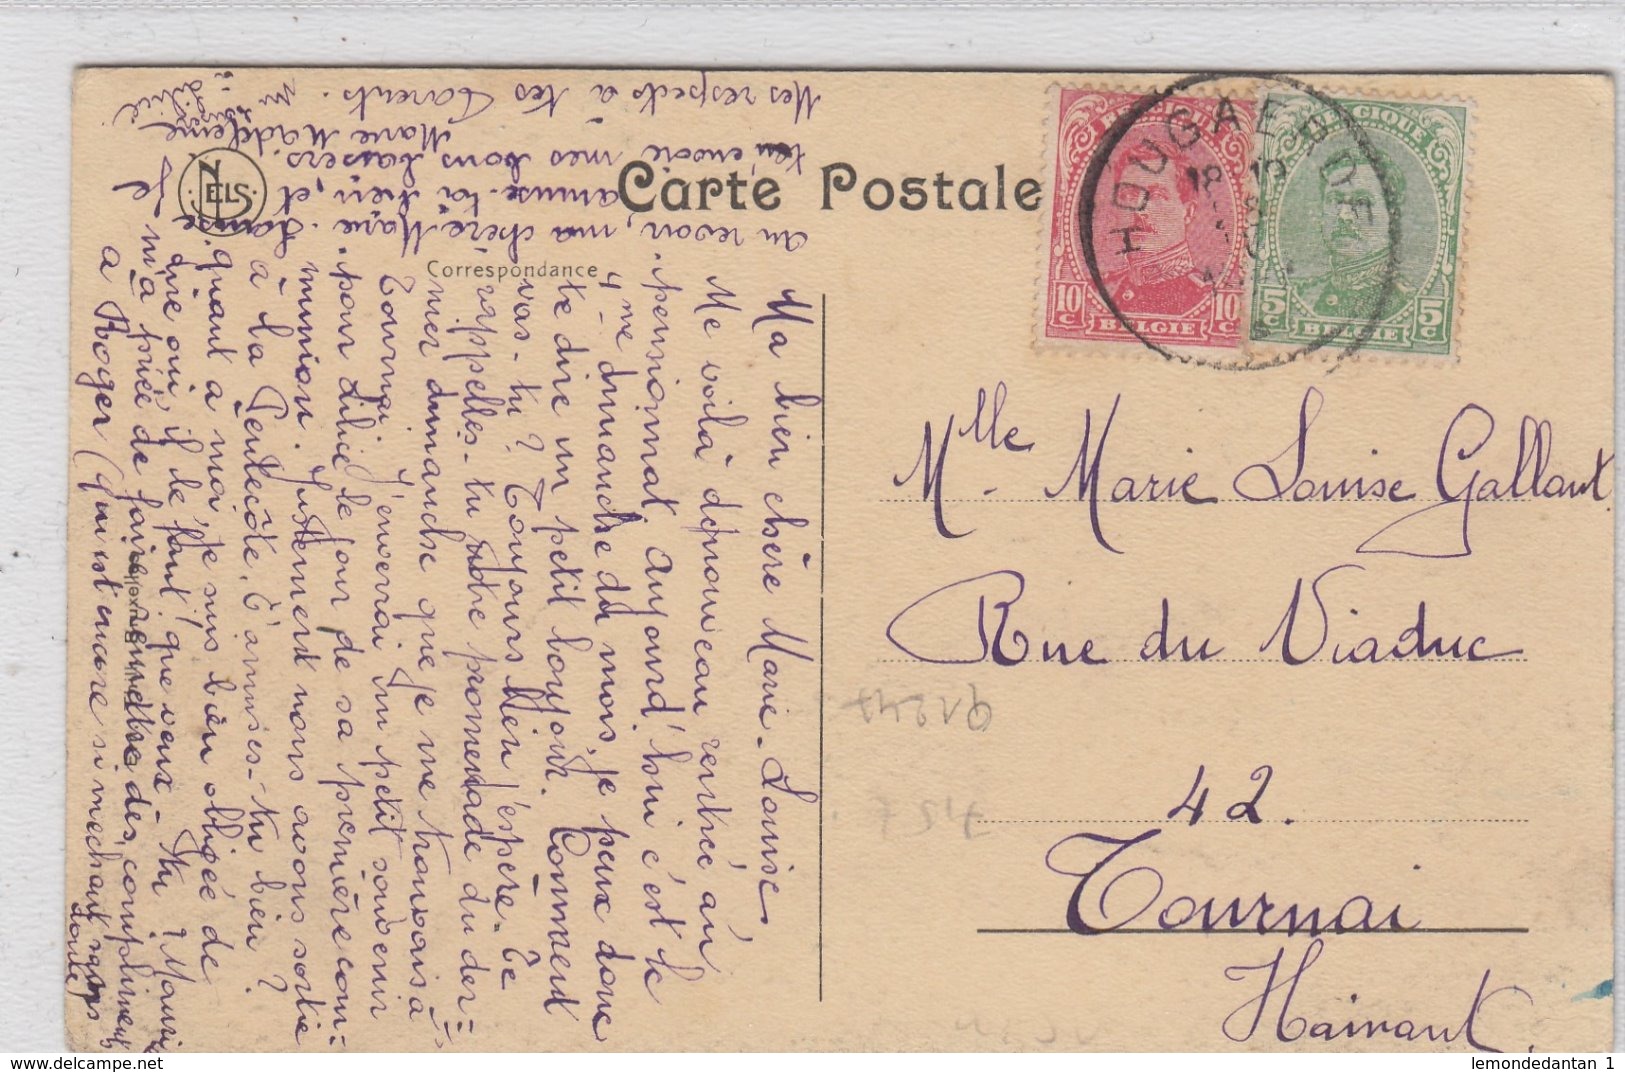 Carte Postale
Correspondance
NELS
BELGIQUE
10 c
10 c
BELGIE
BELGIQUE
5 c
5 c
BELGIE
HOUGAERDE
Mlle Marie Louise Gallant
Rue du Viaduc
42.
Tournai
Hainaut.
Ma bien chère Marie-Louise
Me voilà de nouveau rentrée au
pensionnat. Aujourd'hui c'est le
4me dimanche du mois, je peux donc
te dire un petit bonjour. Comment
vas-tu ? Toujours bien j'espère. Te
rappelles-tu notre promenade du der=
nier dimanche que je me trouvais à
Tournai. J'enverrai un petit souvenir
pour Lilie le jour de sa première com=
munion. Justement nous avons sortie
à la Pentecôte. T'amuses-tu bien ?
quant à moi je suis bien obligée de
dire oui, il le faut! que veux-tu ?
m'a priée de faire des compliments
à Roger (qui est encore si méchant sans
doute)
Je
au revoir, ma chère Marie-Louise
amuse-toi bien, et
t'envoie mes bons baisers.
Marie Madeleine
Mes respects à tes Parents.
lemondedantan 1